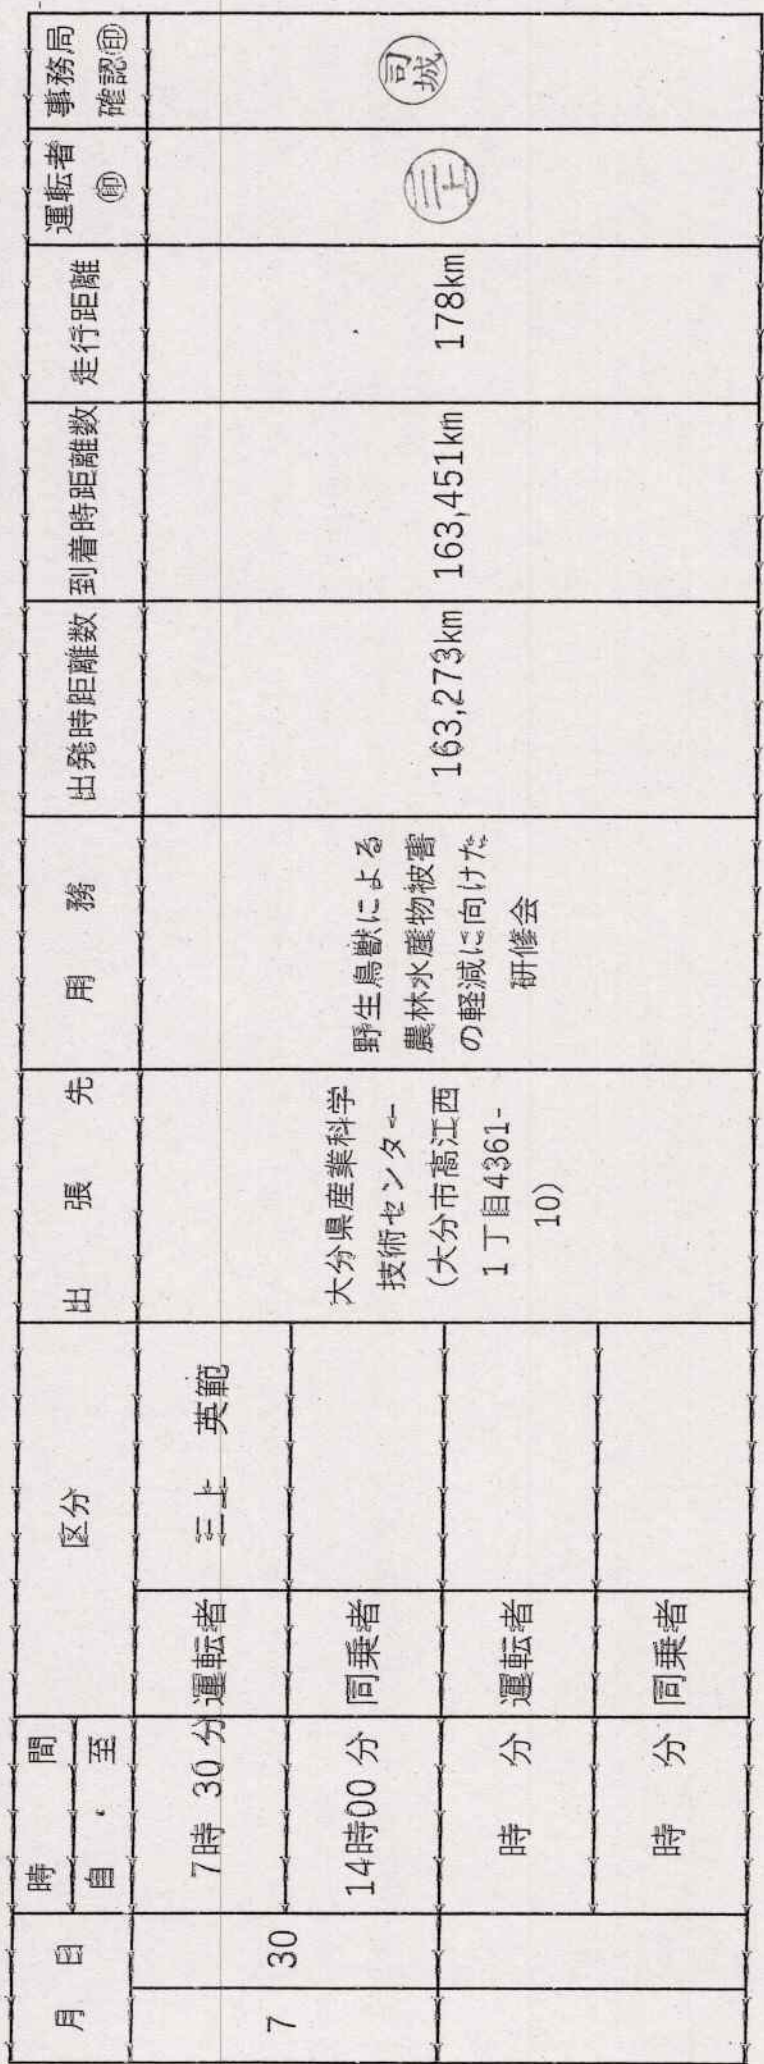 月 日 時 間 区分 出 張 先 用 務 出発時距離数 到着時距離数 走行距離 運転者 事務局
自 ・ 至 ㊞ 確認㊞
7 30 7時 30分 運転者 三上 英範
14時00分 同乗者
大分県産業科学
技術センター
(大分市高江西
1丁目4361-
10)
野生鳥獣による
農林水産物被害
の軽減に向けた
研修会
163,273km 163,451km 178km 三上 司城
時 分 運転者
時 分 同乗者